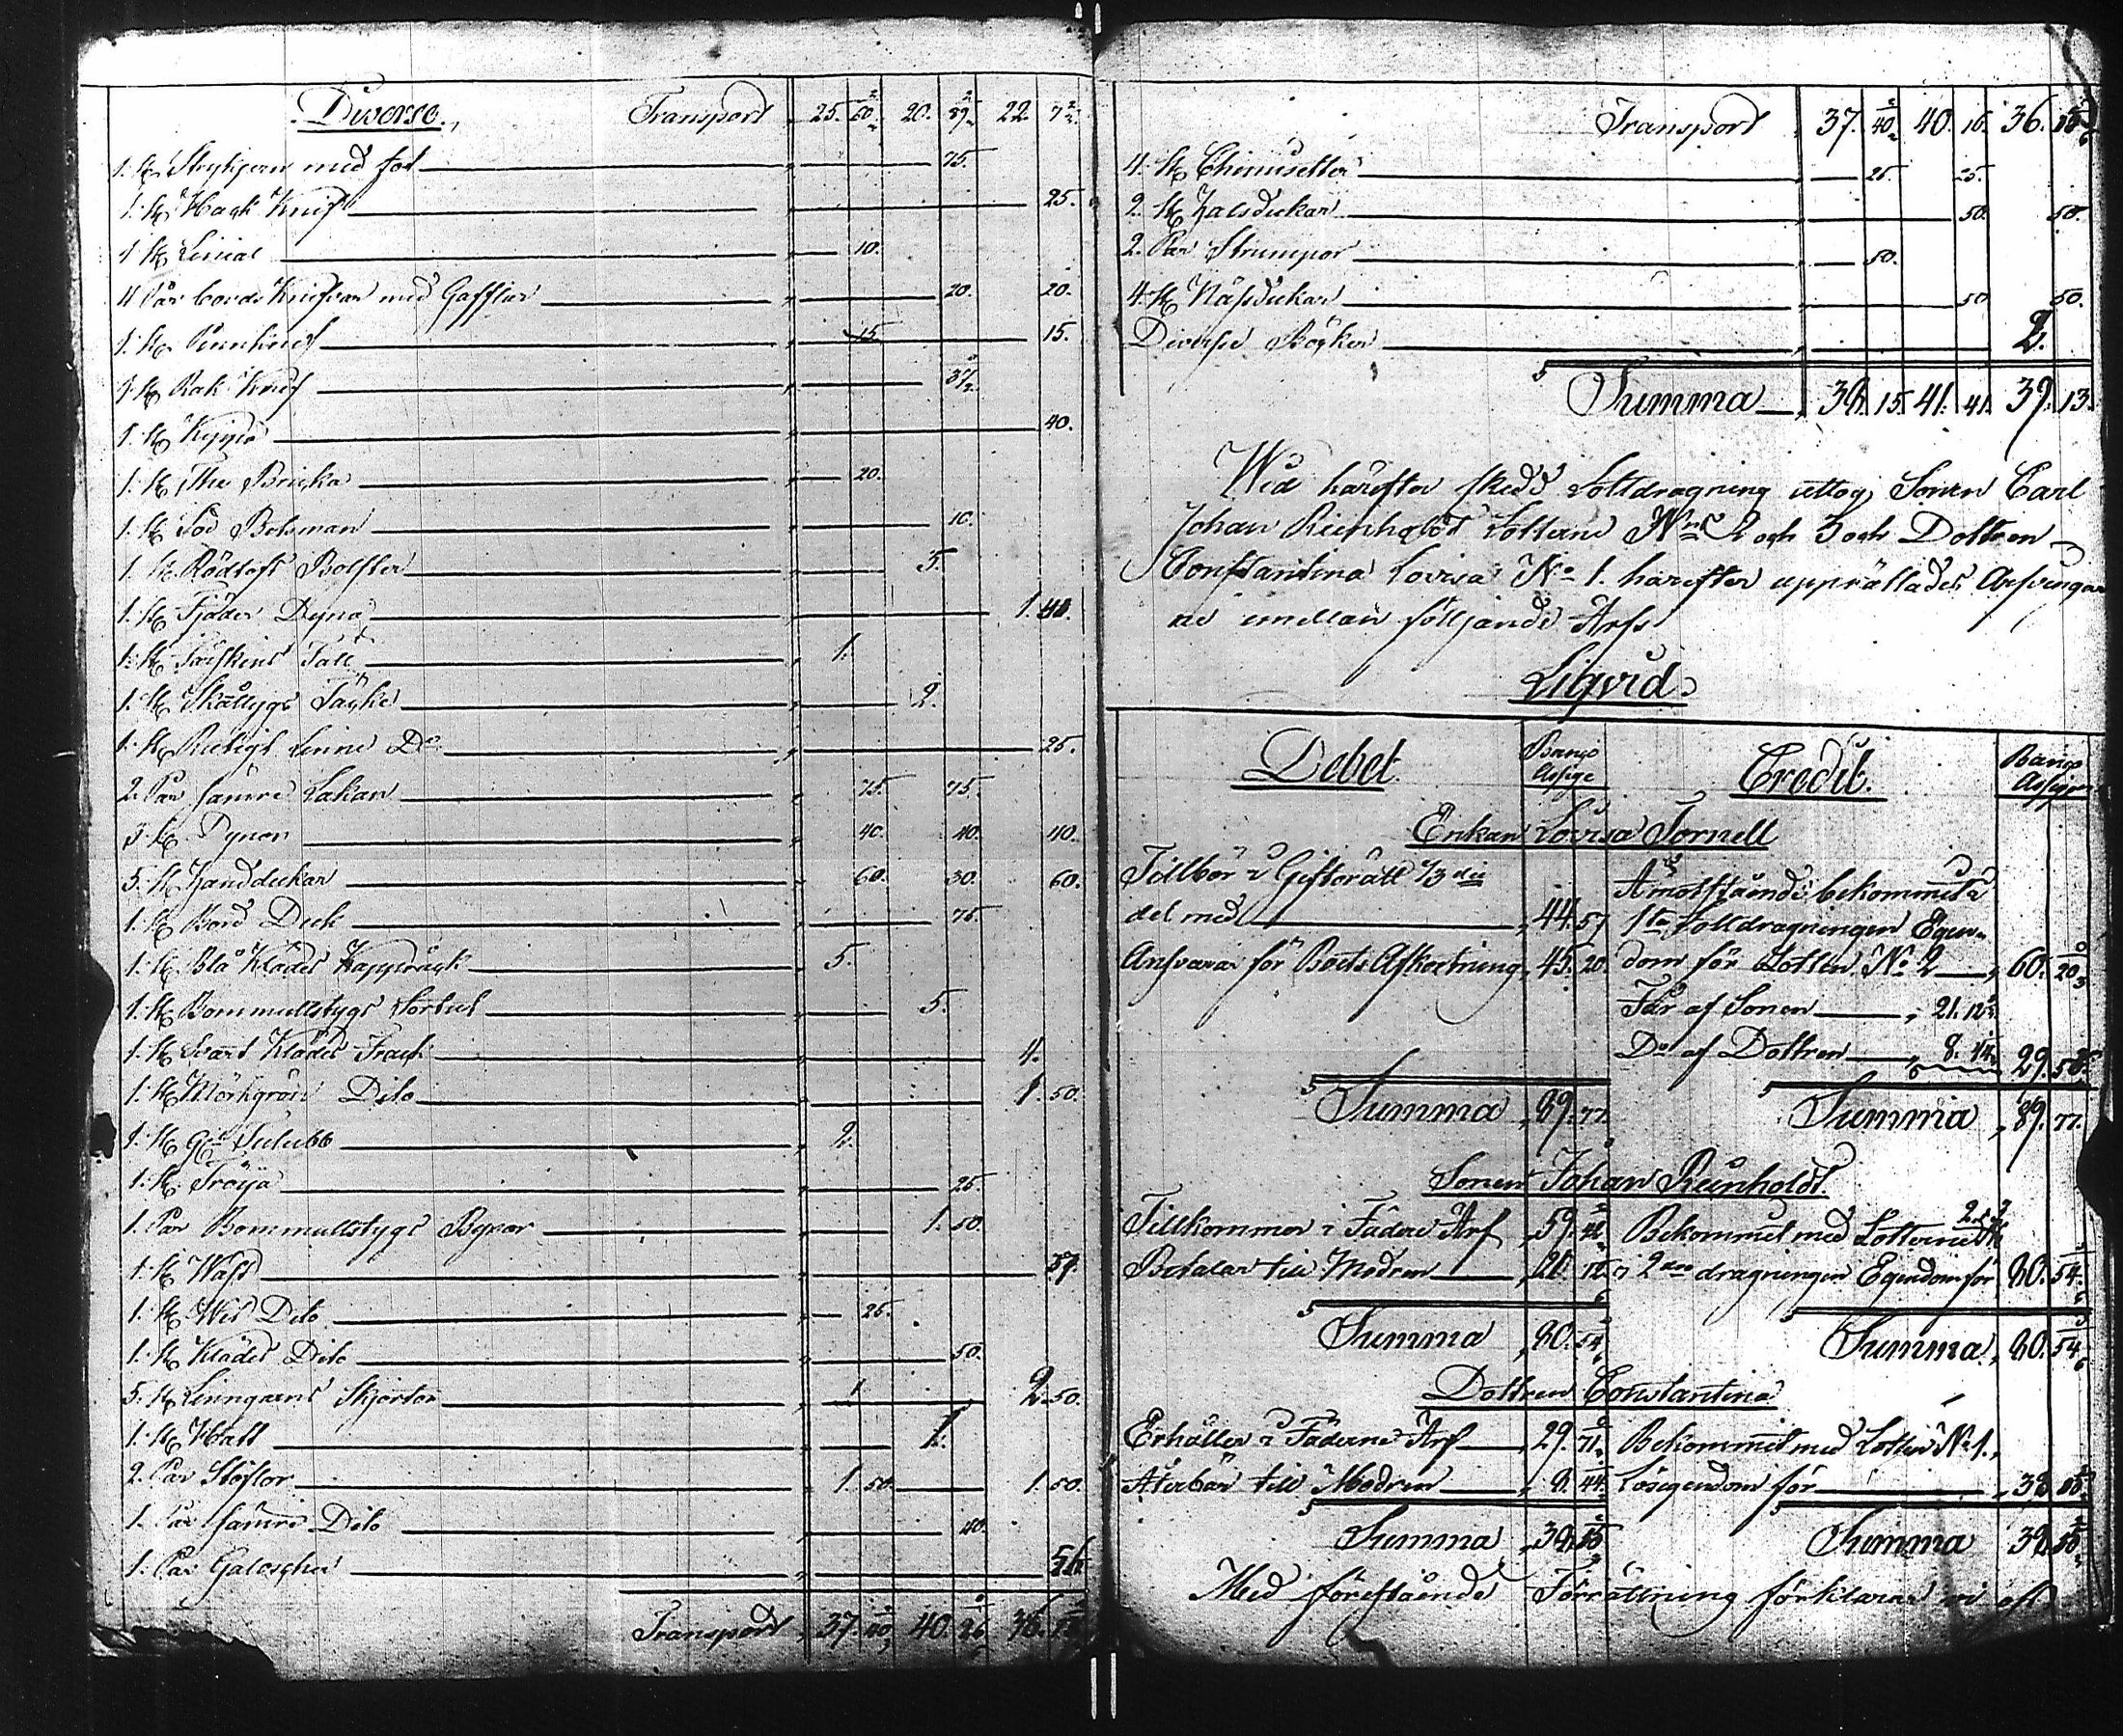 Diverse., Transport 25. 60 20. 89 22. 7
1. St Strykjern med fot 75.
1. St Hack Knif 25.
1 St Linial 10.
4 Par bords Knifvar med Gafflar 20. 20.
1. St Pennknif 15. 15.
1 St Rak Knif 37
1. St 40.
1. St The Bricka 20.
1. St Bolsman 10.
1. St Bolster 5.
1. St Fjäder Dyna 1. 40.
1. St Fårskins Fäll 1.
1. St Täcke 2.
1. St Linne Do 25.
2. Par sämre Lakan 75. 75.
3 St Dynor 40. 40. 40.
5. St Handdukar 60. 30. 60.
1. St Bord Duk 75.
1. St Blå Klädes Kappråck 5.
1. St Bommullstygs Sortut 5.
1. St Svart Klädes Frack 4.
1. St Mörkgrön Dito 1. 50.
1. St 2.
1. St Tröija 25.
1. Par Bommullstygs Byxor 1. 50.
1. St Wäst 37.
1. St Dito 25.
1. St Klädes Dito 50.
5. St Linngarns Skjortor 1 2. 50.
1. St Hatt 1.
2. Par Stöflor 1. 50. 1. 50.
1. Par sämre Dito 40.
1. Par Galoscher 56
Transport 37. 40 40. 26 36.
Transport 37. 40. 40. 16. 36.
4. St Chemisetter 25. 25.
2. St Halsdukar 50. 50.
2. Par Strumpor 50.
4. St Näsdukar 50 50.
Diverse Böcker 2.
Summa 38. 15. 41. 41. 39. 13.
Wid härefter skedd Lottdragning uttog Sonen Carl
Johan Reinhold Lotterne No 2 och 3 och Dottren
Constantina Lovisa No 1. härefter upprättades Arfvingar
ne emellan följande Arfs
Liqvid.
Debet. Banco Assige Credit. Banco Assign
Enkan Lovisa Tornell
Tillbör i Giftorätt 1/3 die
del med 44. 57
Ansvarar för Boets Afkortning 45. 20.
Å motstående bekommit i
1sta Lottdragningen Egen-
dom för Lotten No 2 60. 20
Får af Sonen 21. 12
Do af Dottren 8. 44 29.
Summa 89. 77. Summa 89. 77.
Sonen Johan Reinhold.
Tillkommer i Fäderne Arf 59. Bekommit med Lotterne
Betalar till Modren 2dra dragningen Egendom för 80. 54.
Summa 80. 54 Summa 80. 54
Dottren Constantina
Erhåller i Fäderne Arf 29. 71 Bekommit med Lotten No 1.
Återbär till Modren 8. 44 Lösegendom för 38.
Summa 38. 15 Summa 38. 15
Med föreståënde Förrättning förklara vi oss